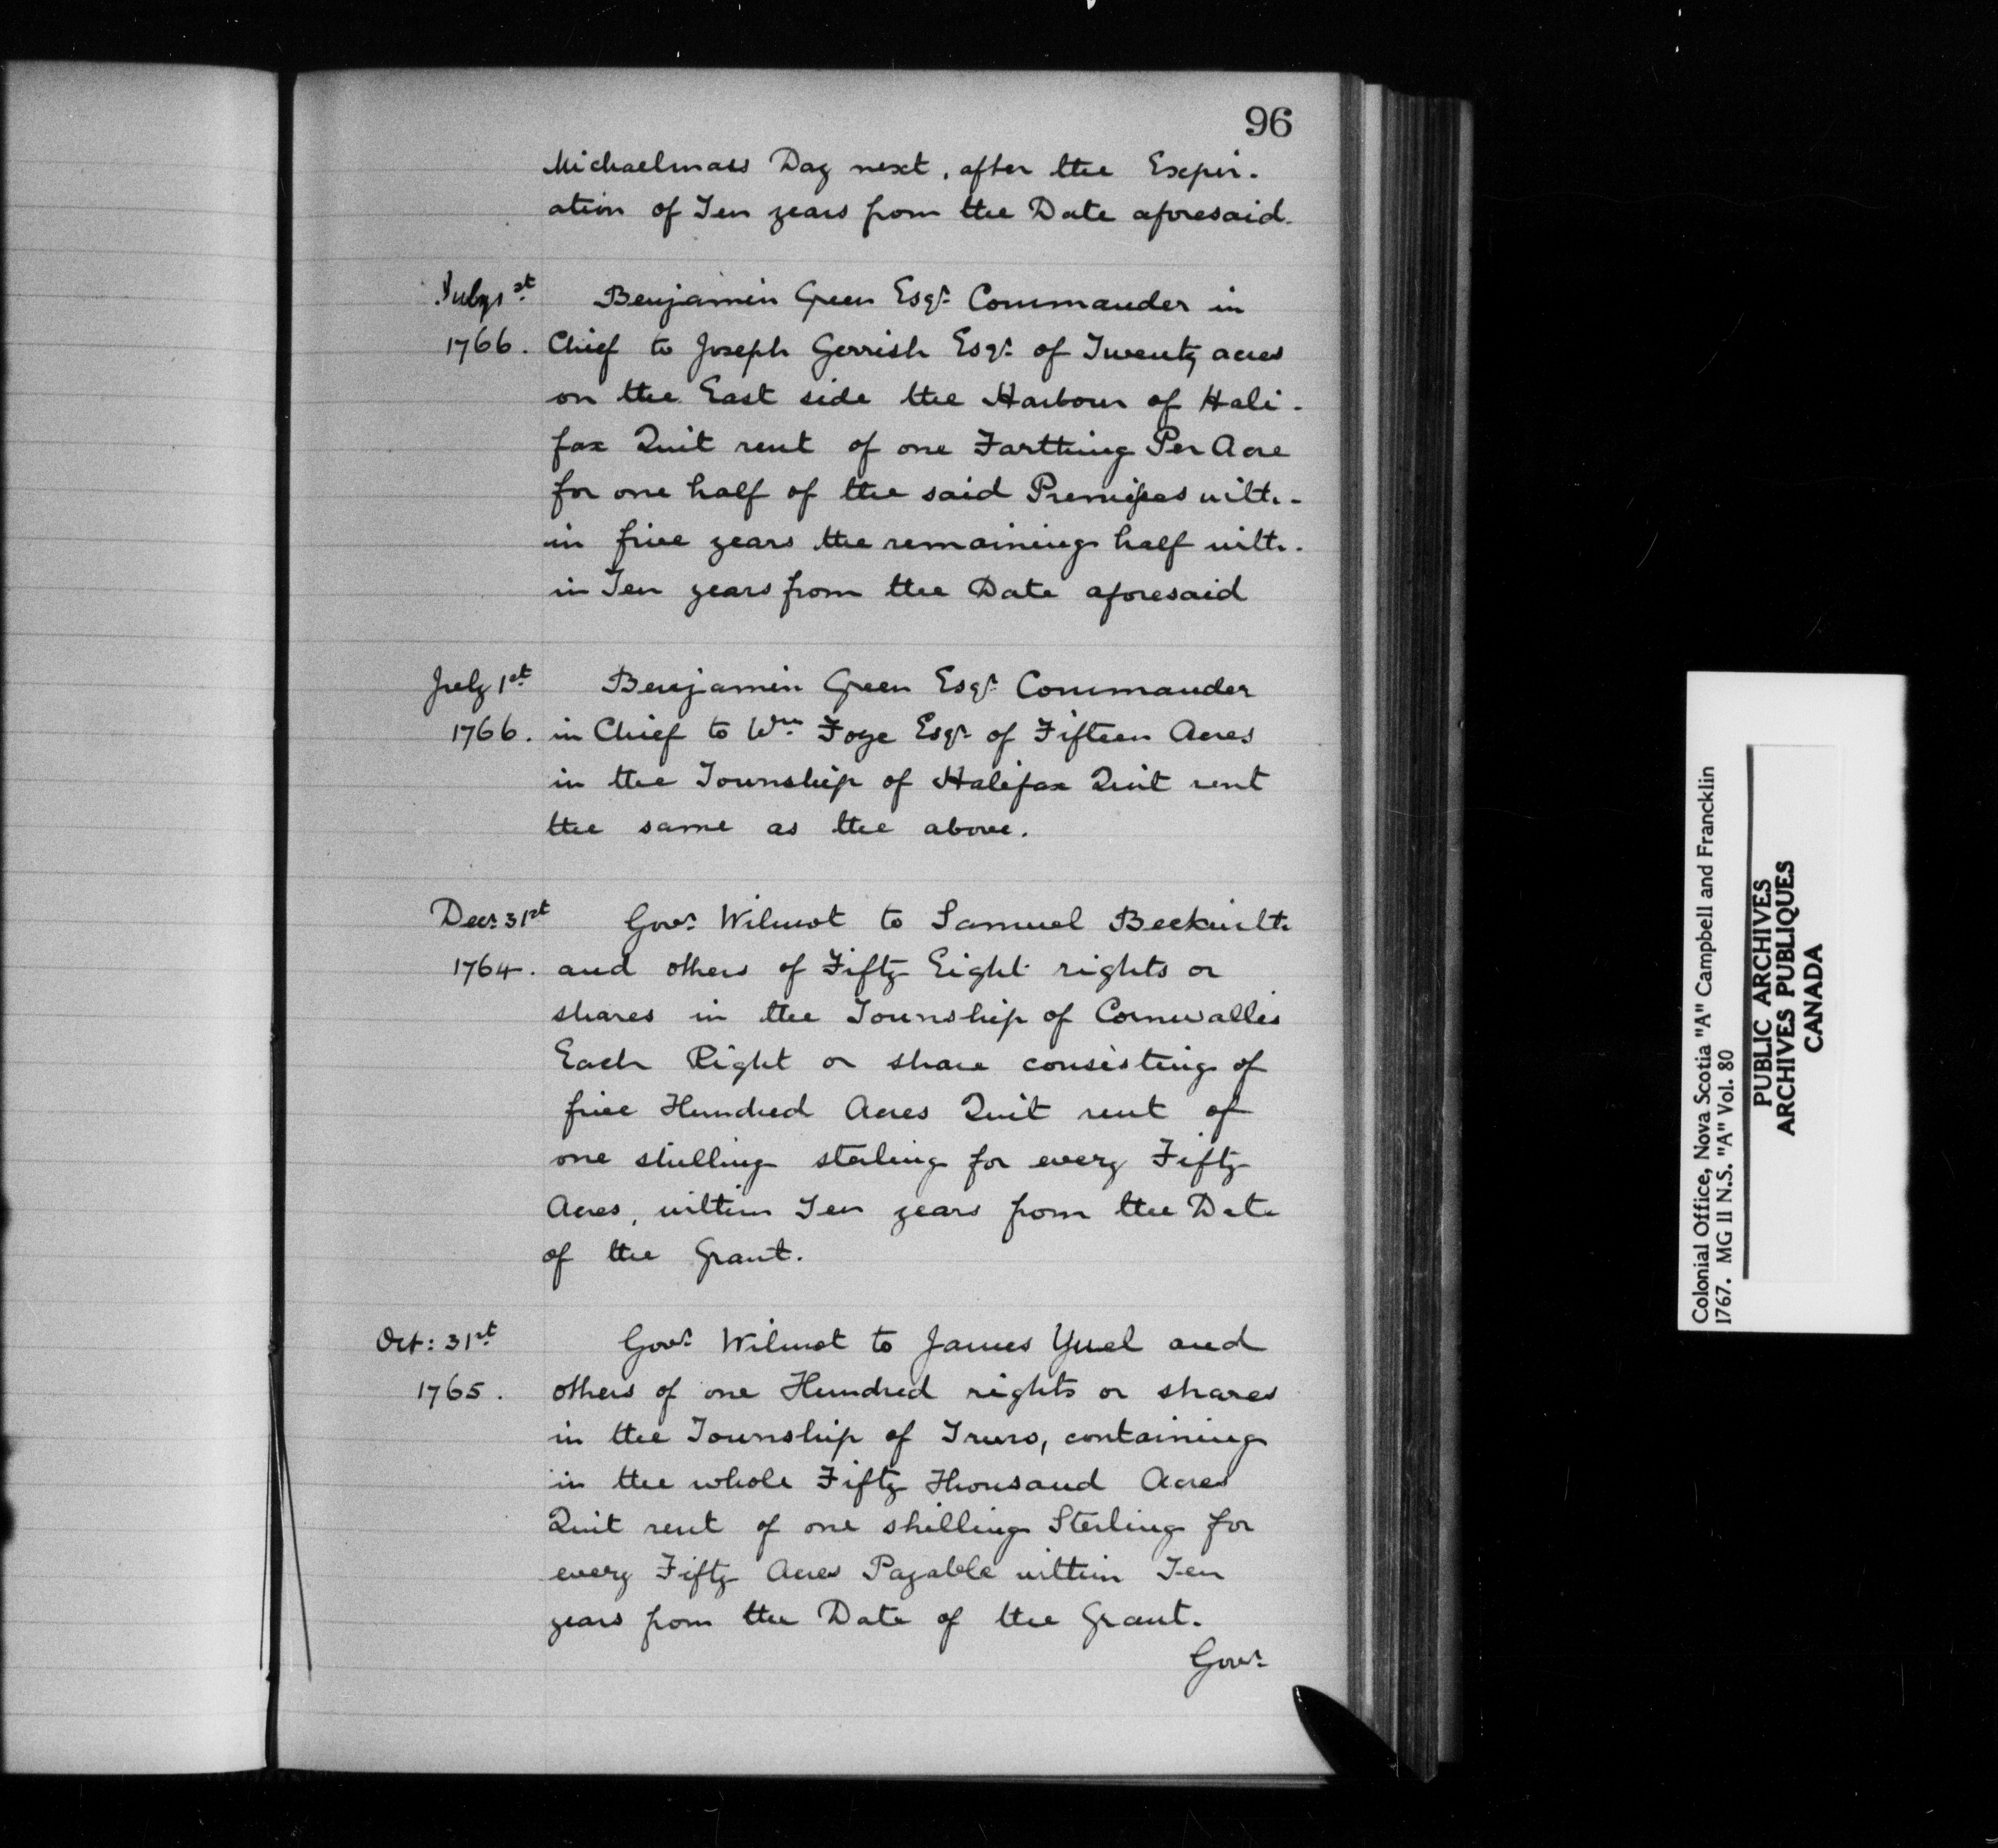 96
Michaelmass Day next, after the Expir-
ation of Ten years from the Date aforesaid.
July 1st Benjamin Green Esqr. Commander in
1766. Chief to Joseph Gerrish Esqr. of Twenty acres
on the East side the Harbour of Hali-
fax Quit rent of one Farthing Per Acre
for one half of the said Premises with-
in five years the remaining half with-
in Ten years from the Date aforesaid
July 1st Benjamin Green Esqr. Commander
1766. in Chief to Wm. Foye Esqr. of Fifteen Acres
in the Township of Halifax Quit rent
the same as the above.
Decr. 31st Govr. Wilmot to Samuel Beckwith
1764. and others of Fifty Eight rights or
shares in the Township of Cornwallis
Each Right or share consisting of
five Hundred Acres Quit rent of
one shilling sterling for every Fifty
Acres, within Ten years from the Date
of the Grant.
Oct: 31st Govr. Wilmot to James Yuel and
1765. others of one Hundred rights or shares
in the Township of Truro, containing
in the whole Fifty Thousand Acres
Quit rent of one shilling Sterling for
every Fifty Acres Payable within Ten
years from the Date of the Grant.
Govr.
Colonial Office, Nova Scotia "A" Campbell and Francklin
1767. MG 11 N.S. "A" Vol. 80
PUBLIC ARCHIVES
ARCHIVES PUBLIQUES
CANADA